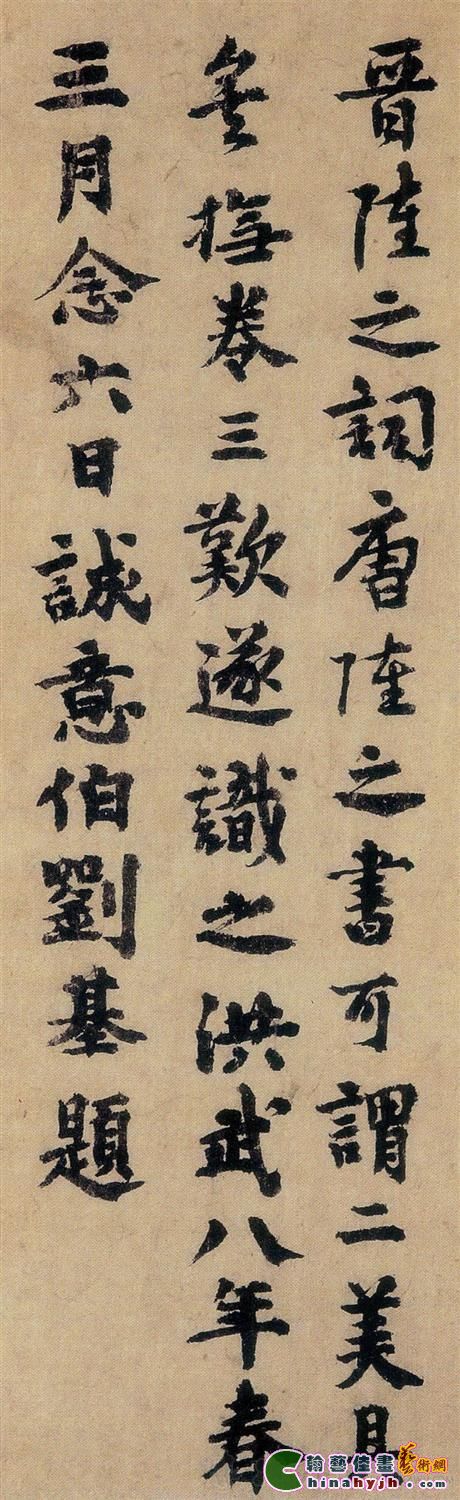 晉陸之詞唐陸之書可謂二美具
矣撫卷三歎遂識之洪武八年春
三月念六日誠意伯劉基題
翰藝佳畫藝術網
Chinahyjh.com